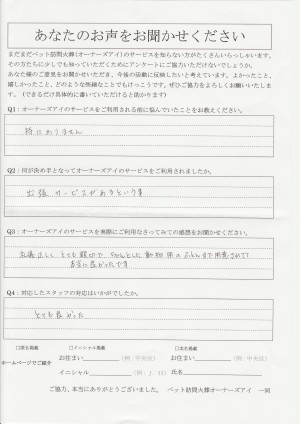 あなたのお声をお聞かせください
まだまだペット訪問火葬(オーナーズアイ)のサービスを知らない方がたくさんいらっしゃいます。
その方たちに少しでも知っていただくためにアンケートにご協力いただけないでしょうか。
あなた様のご意見をお聞かせいただき、今後の活動に反映したいと考えています。よかったこと、
嬉しかったこと、どのような些細なことでもけっこうです。ぜひご協力をよろしくお願いいたしま
す。(できるだけ具体的に書いていただけると助かります)
Q1:オーナーズアイのサービスをご利用される前に悩んでいたことをお教えください。
特にありません
Q2:何が決め手となってオーナーズアイのサービスをご利用されましたか。
出張サービスがあるという事
Q3:オーナーズアイのサービスを実際にご利用なさってみての感想をお聞かせください。
礼儀正しく とても親切で、ちゃんとした動物用のふとんまで用意されて
本当に良かったです
Q4:対応したスタッフの対応はいかがでしたか。
とても良かった
□匿名掲載 □イニシャル掲載 □実名掲載
ホームページでご紹介
お住まい (例:中央区) お住まい (例:中央区)
イニシャル (例:J.H) 氏名
ご協力、本当にありがとうございました。 ペット訪問火葬オーナーズアイ 一同